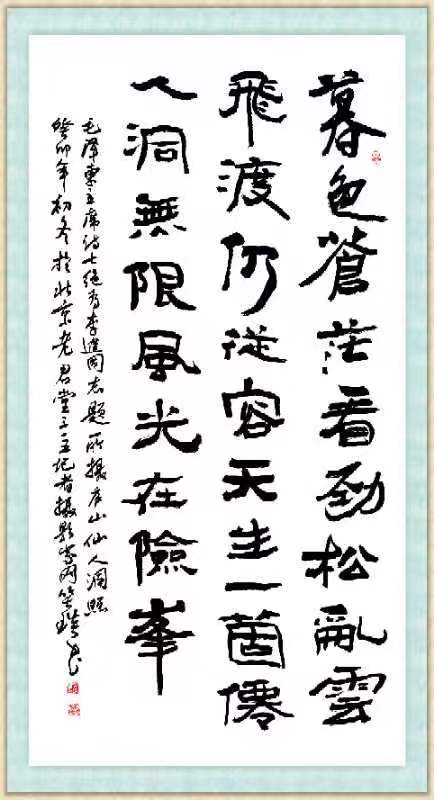 暮色蒼茫看劲松亂雲
飛渡仍從容天生一箇僊
人洞無限風光在險峯
毛澤東主席诗七绝为李進同志題所攝庐山仙人洞照
癸卯年初冬於北京老君堂记者摄影家网书